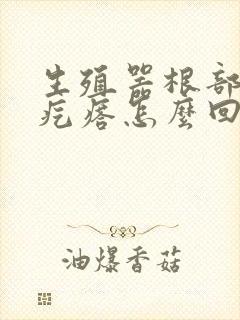 生殖器根部
疙瘩怎麼回
油爆香菇